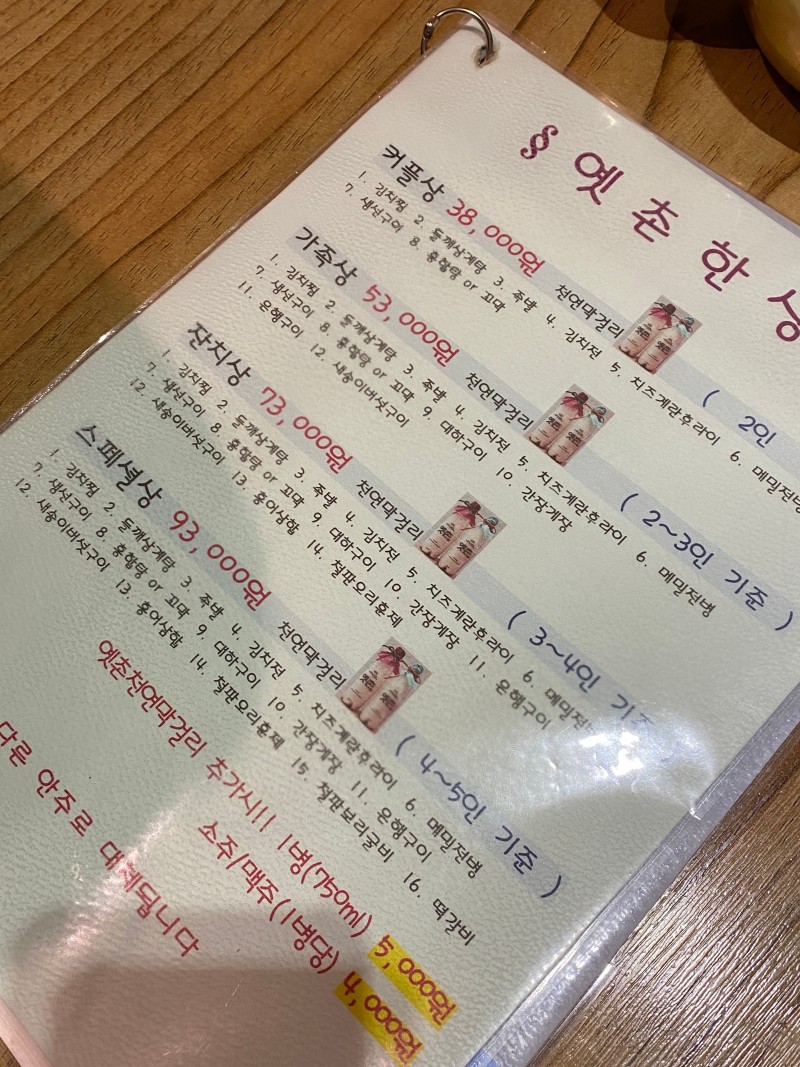 § 옛 촌 한 상
커플상 38,000원 천연막걸리 ( 2인
1. 김치찜 2. 들깨삼계탕 3. 족발 4. 김치전 5. 치즈계란후라이 6. 메밀전병
7. 생선구이 8. 홍합탕 or 꼬대
가족상 53,000원 천연막걸리 ( 2~3인 기준 )
1. 김치찜 2. 들깨삼계탕 3. 족발 4. 김치전 5. 치즈계란후라이 6. 메밀전병
7. 생선구이 8. 홍합탕 or 꼬대 9. 대하구이 10. 간장게장
11. 은행구이 12. 새송이버섯구이
잔치상 73,000원 천연막걸리 ( 3~4인 기준
1. 김치찜 2. 들깨삼계탕 3. 족발 4. 김치전 5. 치즈계란후라이 6. 메밀전병
7. 생선구이 8. 홍합탕 or 꼬대 9. 대하구이 10. 간장게장 11. 은행구이
12. 새송이버섯구이 13. 홍어삼합 14. 철판오리훈제
스페셜상 93,000원 천연막걸리 ( 4~5인 기준 )
1. 김치찜 2. 들깨삼계탕 3. 족발 4. 김치전 5. 치즈계란후라이 6. 메밀전병
7. 생선구이 8. 홍합탕 or 꼬대 9. 대하구이 10. 간장게장 11. 은행구이
12. 새송이버섯구이 13. 홍어삼합 14. 철판오리훈제 15. 철판보리굴비 16. 떡갈비
옛촌천연막걸리 추가시!! 1병(750ml) 5,000원
소주/맥주(1병당) 4,000원
다른 안주로 대체됩니다